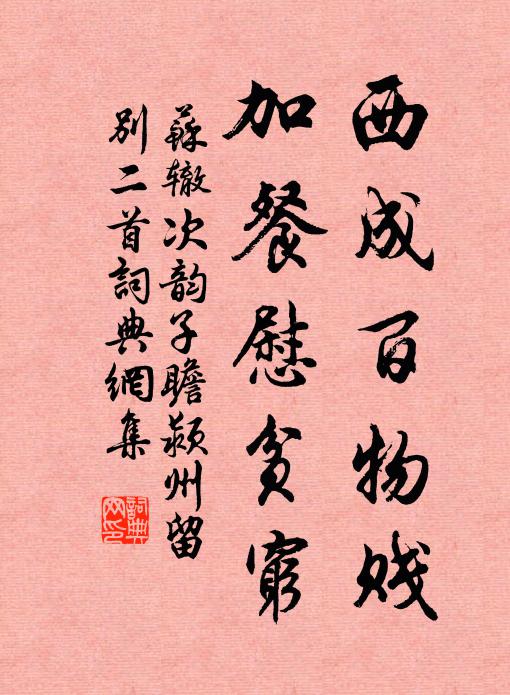 西成百物贱
加餐慰贫穷
蘇辙次韵子瞻颍州留
别二首詞典網集
詞典
网印